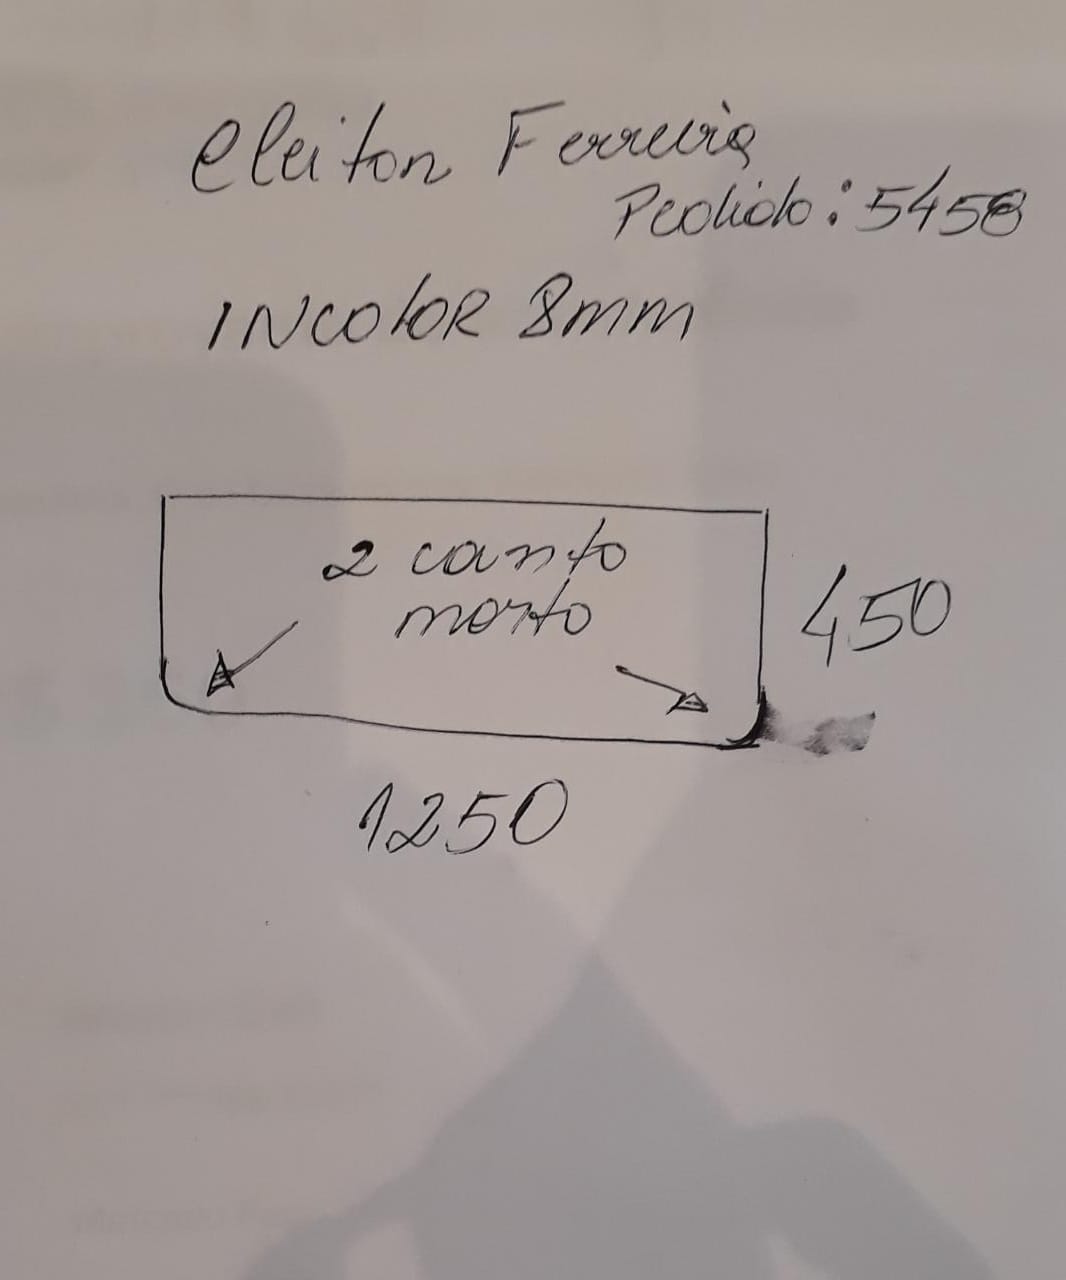 Cleiton Ferreira
Pedido: 5458
INCOLOR 8mm
2 canto
morto
450
1250